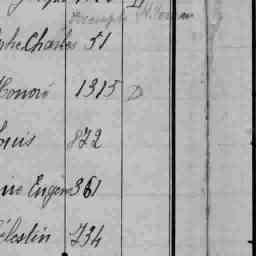 Charles 51
Honoré 1315 D
Louis 872
Eugène 361
Célestin 734